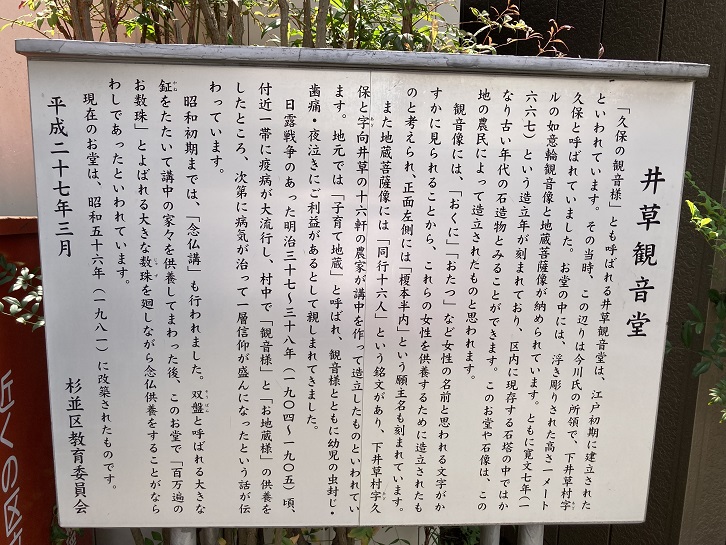 井草観音堂
「久保の観音様」とも呼ばれる井草観音堂は、江戸初期に建立された
といわれています。その当時、この辺りは今川氏の所領で、下井草村字
久保と呼ばれていました。お堂の中には、浮き彫りされた高さ一メート
ルの如意輪観音像と地蔵菩薩像が納められています。ともに寛文七年(一
六六七)という造立年が刻まれており、区内に現存する石塔の中ではか
なり古い年代の石造物とみることができます。このお堂や石像は、この
地の農民によって造立されたものと思われます。
観音像には、「おくに」「おたつ」など女性の名前と思われる文字がか
すかに見られることから、これらの女性を供養するために造立されたも
のと考えられ、正面左側には「榎本半内」という願主名も刻まれています。
また地蔵菩薩像には「同行十六人」という銘文があり、下井草村字久
保と字向井草の十六軒の農家が講中を作って造立したものといわれてい
ます。地元では「子育て地蔵」と呼ばれ、観音様とともに幼児の虫封じ・
歯痛・夜泣きにご利益があるとして親しまれてきました。
日露戦争のあった明治三十七〜三十八年(一九〇四〜一九〇五)頃、
付近一帯に疫病が大流行し、村中で「観音様」と「お地蔵様」の供養を
したところ、次第に病気が治って一層信仰が盛んになったという話が伝
わっています。
昭和初期までは、「念仏講」も行われました。双盤と呼ばれる大きな
鉦をたたいて講中の家々を供養してまわった後、このお堂で「百万遍の
お数珠」とよばれる大きな数珠を廻しながら念仏供養をすることがなら
わしであったといわれています。
現在のお堂は、昭和五十六年(一九八一)に改築されたものです。
平成二十七年三月
杉並区教育委員会
近くの区